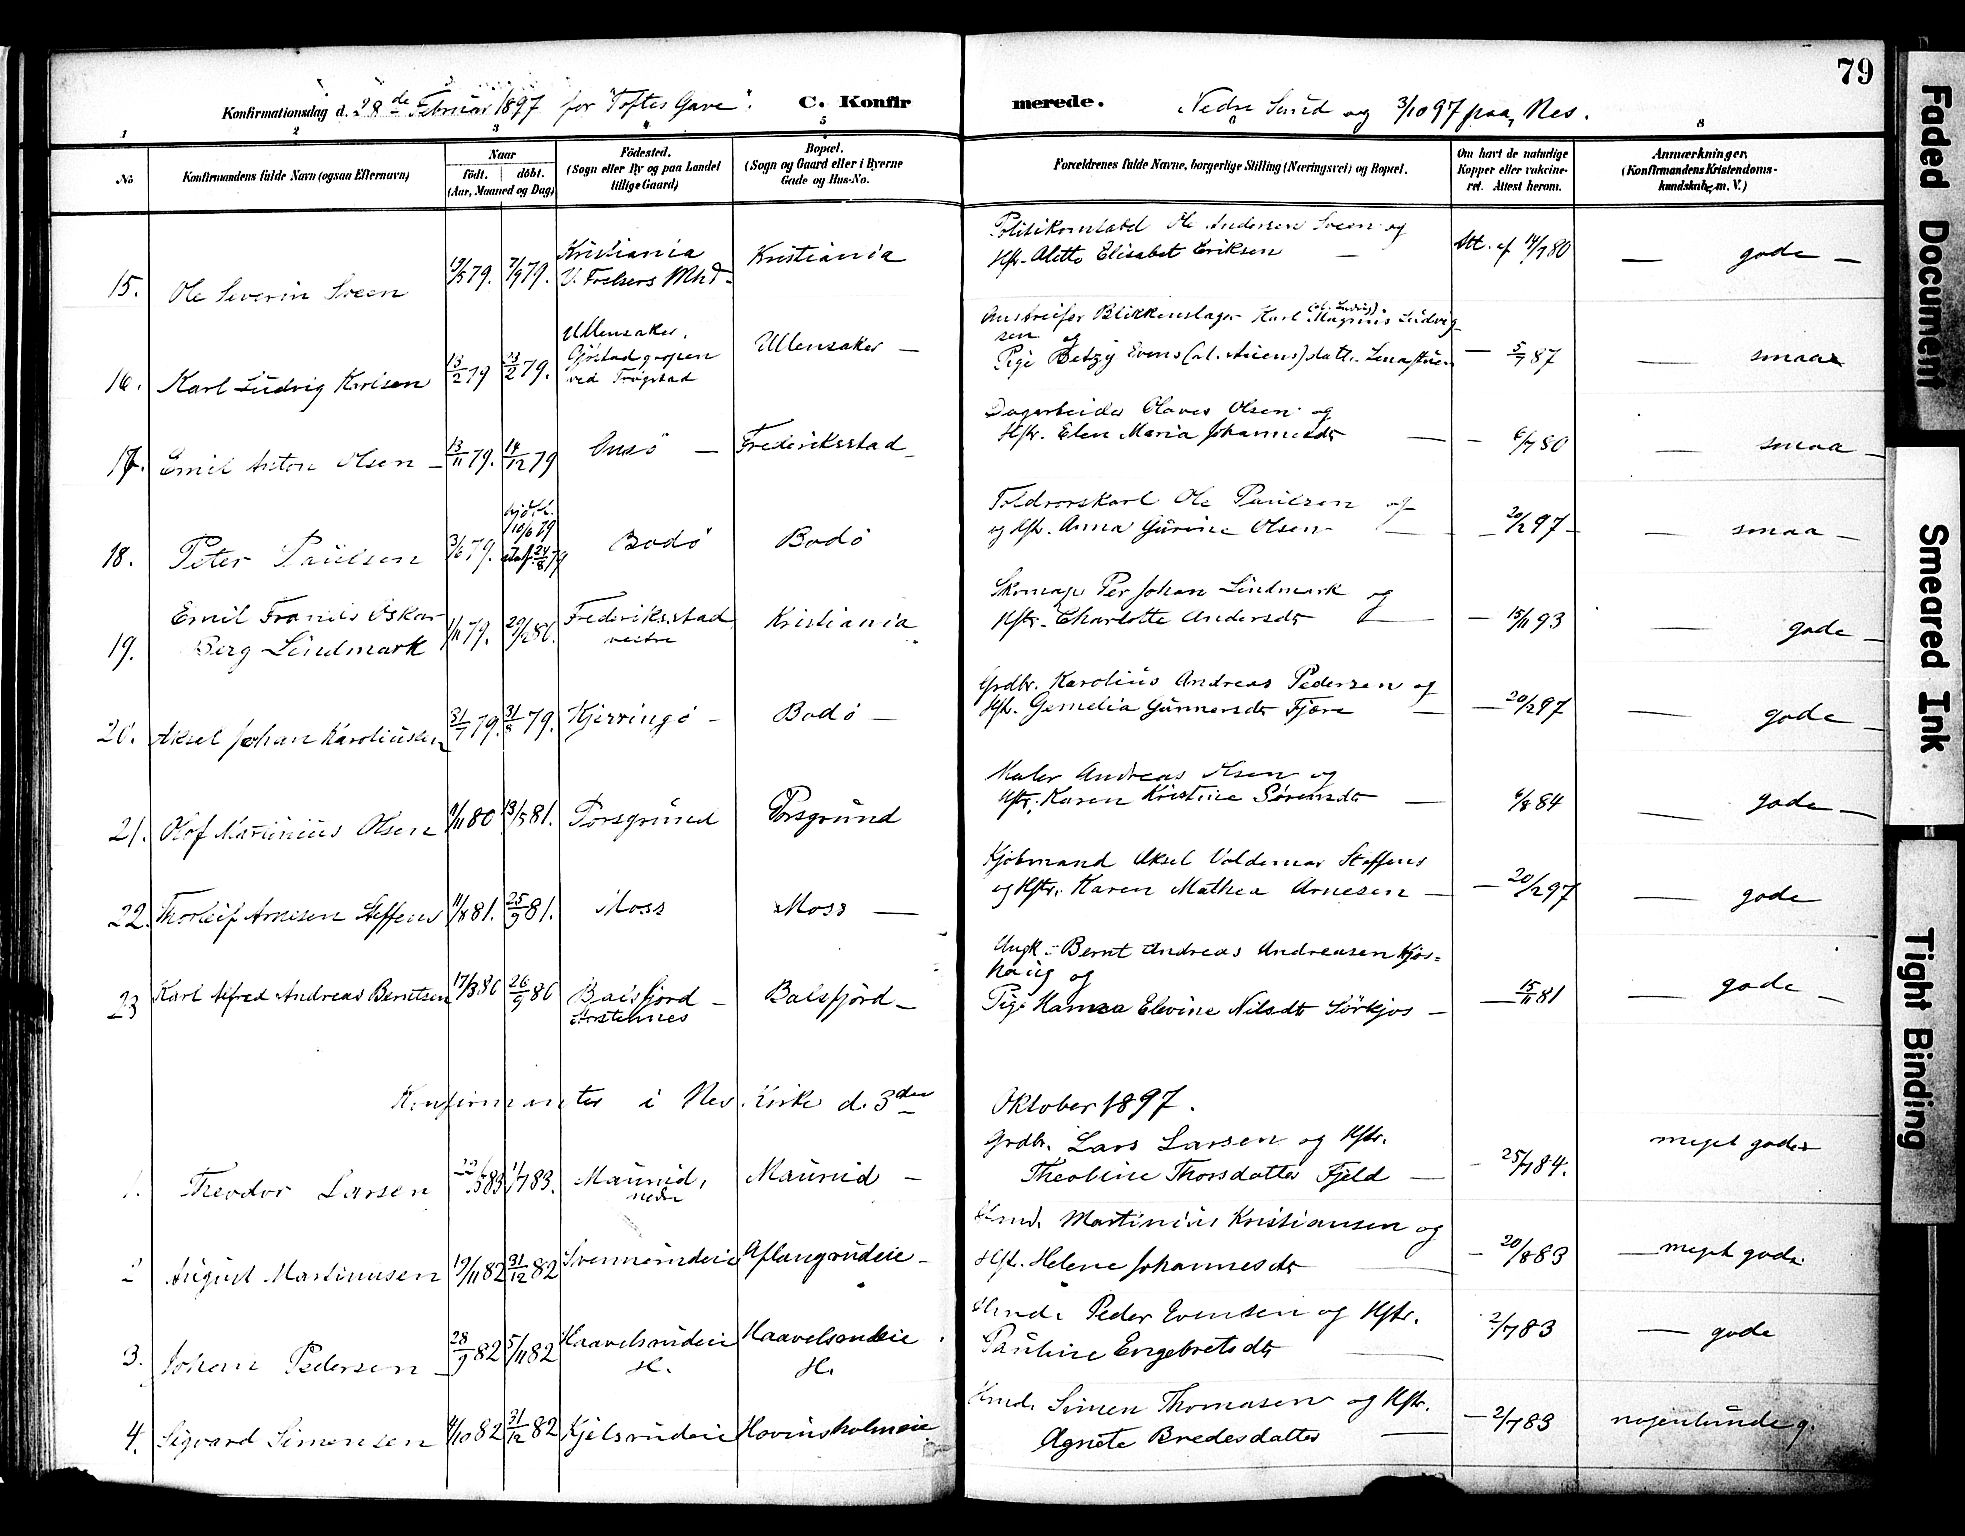 79
Konfirmationsdag d. 28de Februar 1897 for "Toftes Gave". C. Konfirmerede. Nedre Sund og 3/10 97 paa Nes.
1 2 3 4 5 6 8
No
Konfirmandens fulde Navn (ogsaa Efternavn)
Naar
födt. döbt.
(Aar, Maaned og Dag)
Födested.
(Sogn eller By og paa Landet
tillige Gaard)
Bopæl.
(Sogn og Gaard eller i Byerne
Gade og Hus-No.
Forældrenes fulde Navne, borgerlige Stilling (Næringsvei) og Bopæl.
Om havt de naturlige
Kopper eller vakcine-
ret. Attest herom.
Anmærkninger.
(Konfirmandens Kristendoms-
kundskab, m. V.)
15. Ole Severin Sveen 79. 7/9 79. Kristiania
V. Frelsers Mhd. Kristiania
Politikonstabel Ole Andersen Sveen og
Hfr. Alette Elisabet Eriksen — Att. af 14/7 80 — gode —
16. Karl Ludvig Karlsen 13/2 79 23/2 79. Ullensaker,
ved Trøgstad Ullensaker —
Blikkenslager Karl Magnus Ludvig
sen og
Pige Betzy Evens — 5/7 87 — smaa
17. Emil Anton Olsen — 13/11 79. 14/12 79 Onsö — Frederiksstad
Dagarbeider Olaves Olsen og
Hfr. Elen Maria Johannesdtr — — 6/7 80 — smaa —
18. Peter Paulsen 3/6 79. hjd.
10/6 79
24/8 79 Bodö Bodö
Ole Paulsen og
og Hfr. Anna Gurine Olsen — — 20/2 97 — — smaa —
19. Emil Frants Oskar
Berg Lindmark 1/11 79. 29/2 80. Frederiksstad
vestre Kristiania
Skomag Per Johan Lindmark og
Hfr. Charlotte Andersdtr — — 15/11 93 — gode —
20. Aksel Johan Karoliussen 31/7 79. 31/8 79. Kjerringö — Bodö —
Grdbr. Karolius Andreas Pedersen og
Hfr. Gemelia Gunnersdtr Fjære — — 20/2 97 — gode —
21. Olof Martinius Olsen /11 80 13/5 81. Porsgrund Porsgrund
Maler Andreas Olsen og
Hfr. Karen Kristine Sörensdtr — 6/8 84 — gode —
22. Thorleif Arnesen Steffens 11/8 81. 25/9 81. Moss Moss —
Kjöbmand Aksel Valdemar Steffens
og Hfr. Karen Mathea Arnesen — — 20/2 97 — gode
23 Karl Alfred Andreas Berntsen 17/3 80 26/9 80 Balsfjord —
Balsfjord —
Ungk. Bernt Andreas Andreasen Kjos=
haug og
Pige Hansa Elevine Nilsdtr Sörkjos — — 15/11 81 — gode —
Konfirmanter i Nes Kirke d. 3die Oktober 1897.
1. Theodor Larsen 83 1/7 83. Maurud,
nedre Maurud —
Grdbr. Lars Larsen og Hfr.
Theoline Thorsdatter Fjeld — — 25/7 84. meget gode
2 August Martinusen 19/11 82 31/12 82 Svennerudeie Aflangrudeie —
Hmd. Martinius Kristiansen og
Hfr. Helene Johannesdtr — — 20/8 83 — meget gode
3. Johan Pedersen — 28/9 82 5/11 82 Haavelsrudeie
H. Haavelsrudeie
H.
Hmd. Peder Evensen og Hfr.
Pauline Engebretsdtr — 2/7 83 — gode
4. Sigvard Simensen 4/10 82 31/12 82 Kjelsrudeie Hovinsholmeie
Hmd. Simen Thomasen og Hfr.
Agnete Bredesdatter — — 2/7 83 nogenlunde g.
Faded Document
Smeared Ink
Tight Binding